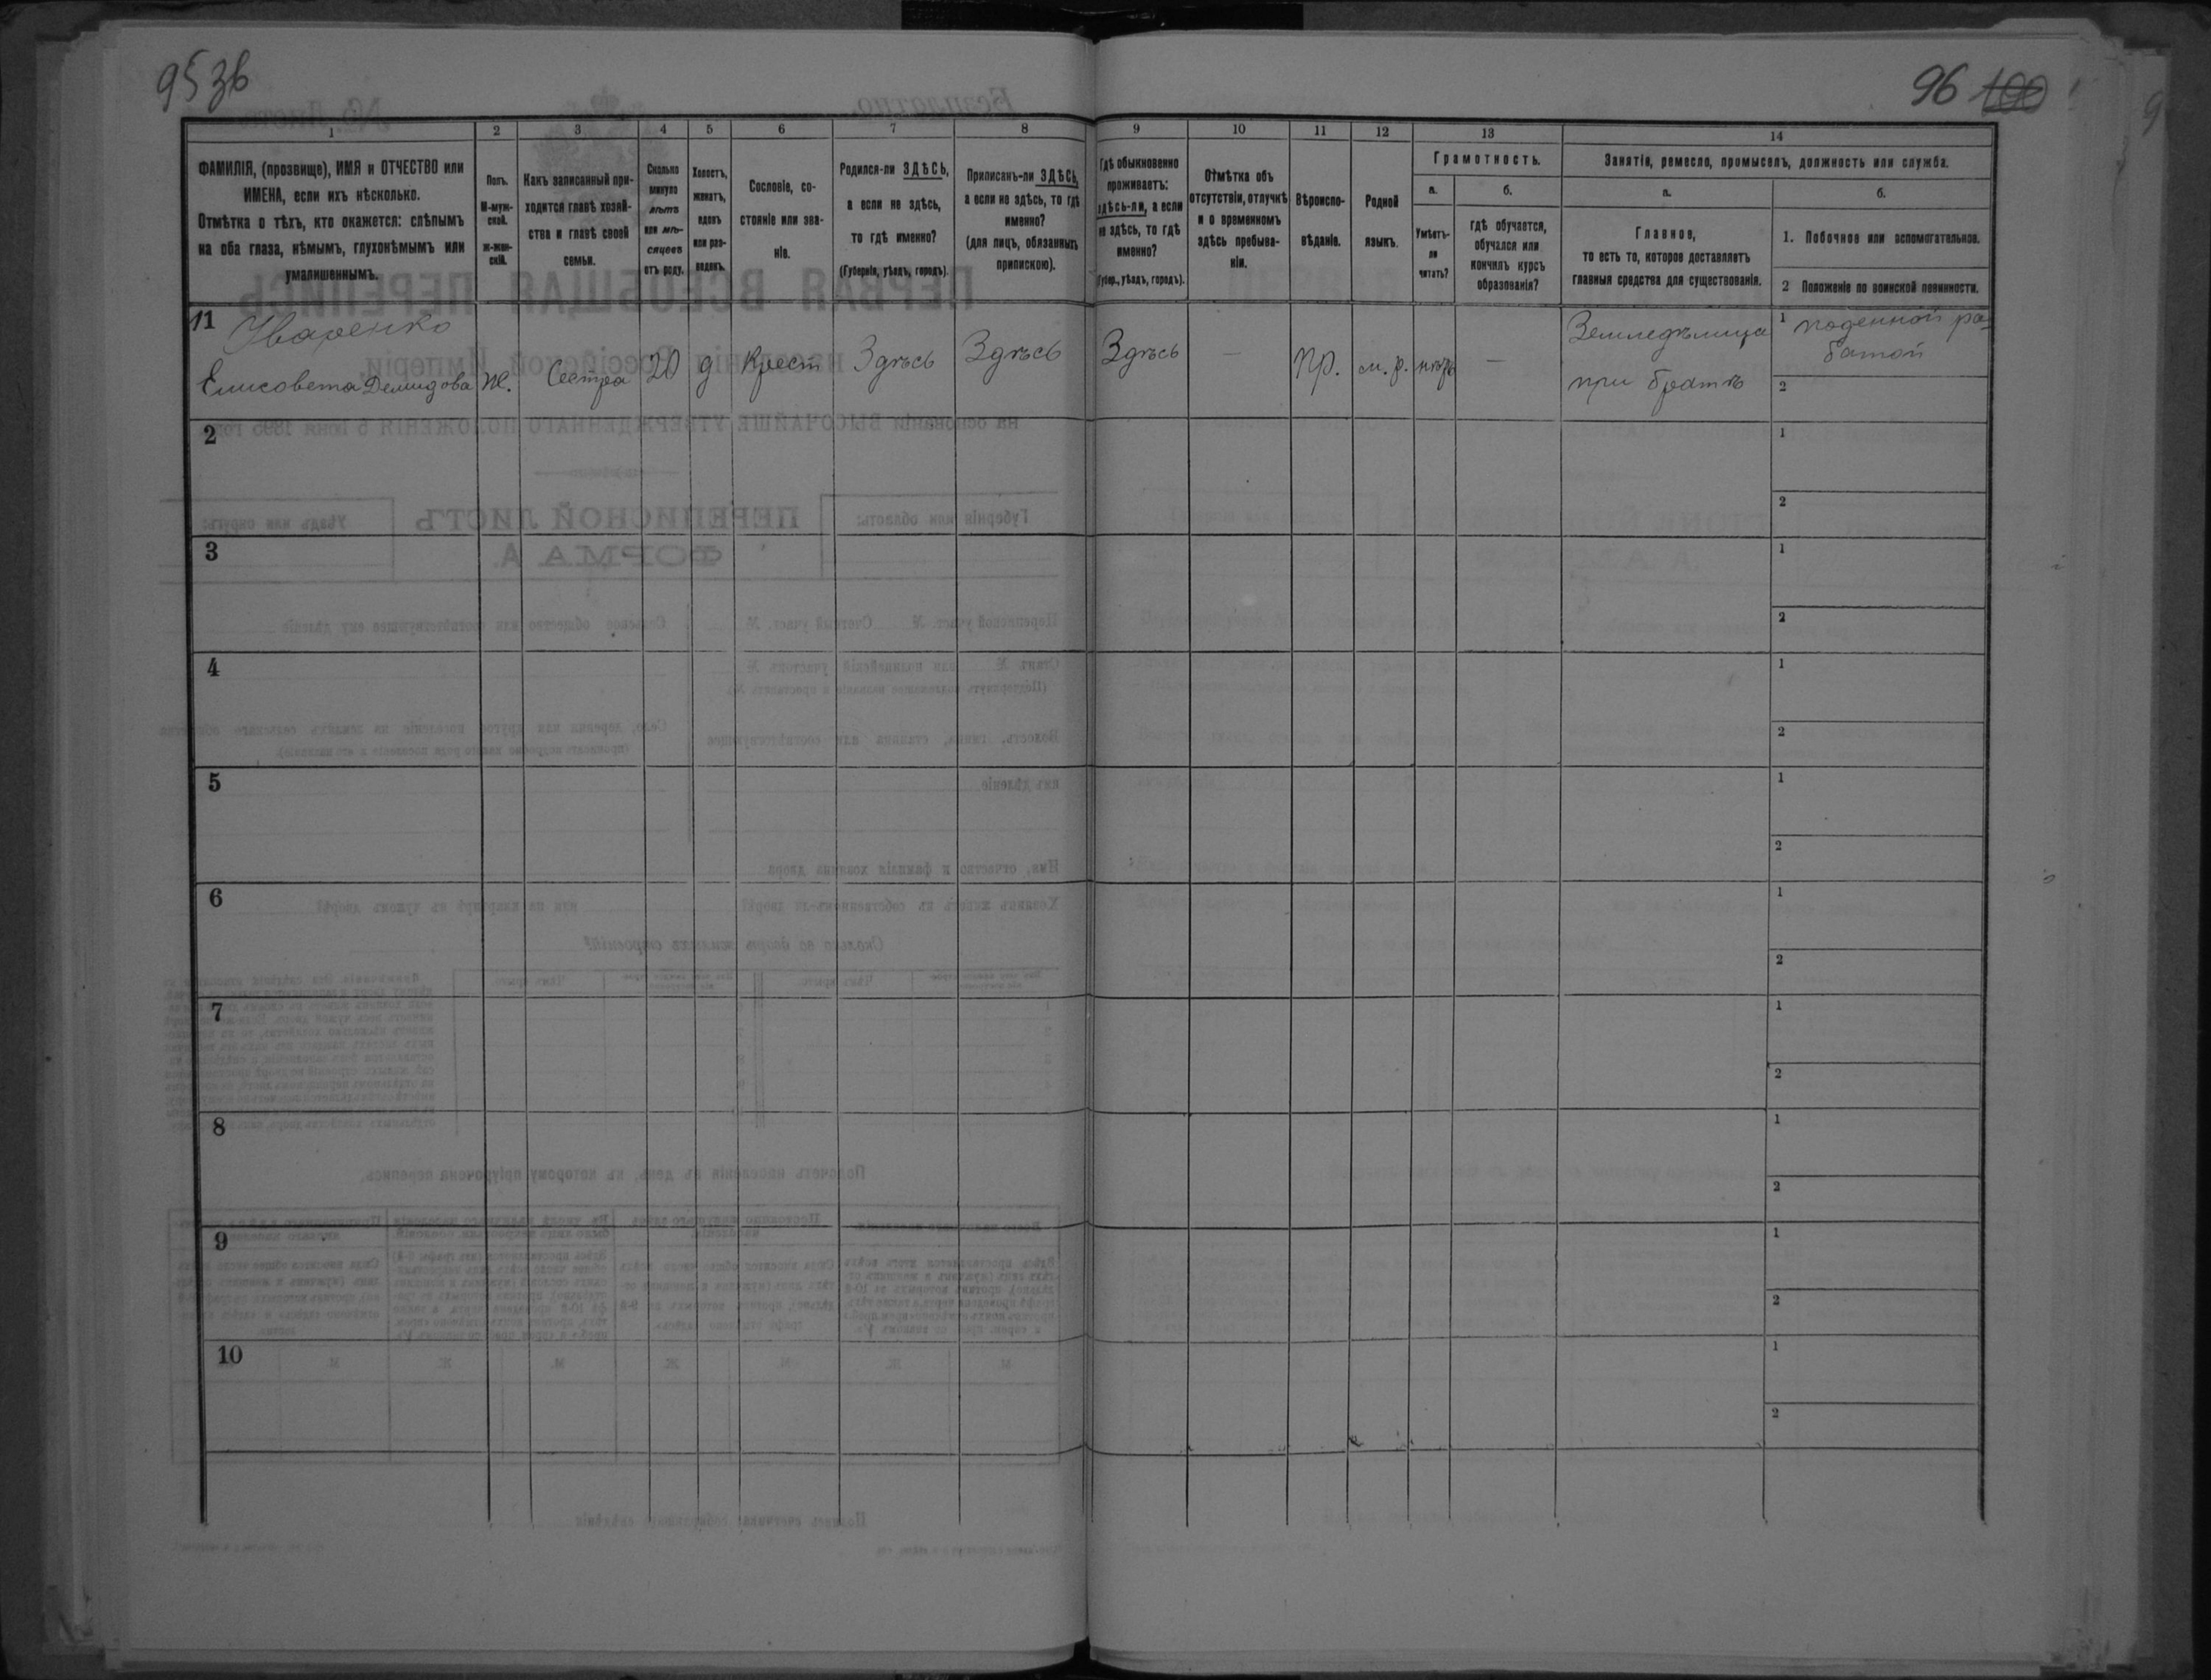 95 зв
96 100
1 2 3 4 5 6 7 8 9 10 11 12 13 14
ФАМИЛІЯ, (прозвище), ИМЯ и ОТЧЕСТВО или
ИМЕНА, если ихъ нѣсколько.
Отмѣтка о тѣхъ, кто окажется: слѣпымъ
на оба глаза, нѣмымъ, глухонѣмымъ или
умалишеннымъ.
Полъ.
М-муж-
ской.
ж-жен-
скій.
Какъ записанный при-
ходится главѣ хозяй-
ства и главѣ своей
семьи.
Сколько
минуло
лѣтъ
или мѣ-
сяцевъ
отъ роду.
Холостъ,
женатъ,
вдовъ
или раз-
веденъ.
Сословіе, со-
стояніе или зва-
ніе.
Родился-ли ЗДѢСЬ,
а если не здѣсь,
то гдѣ именно?
(Губернія, уѣздъ, городъ).
Приписанъ-ли ЗДѢСЬ,
а если не здѣсь, то гдѣ
именно?
(для лицъ, обязанныхъ
припискою).
Гдѣ обыкновенно
проживаетъ:
здѣсь-ли, а если
не здѣсь, то гдѣ
именно?
(Губер., уѣздъ, городъ).
Отмѣтка объ
отсутствіи, отлучкѣ
и о временномъ
здѣсь пребыва-
ніи.
Вѣроиспо-
вѣданіе.
Родной
языкъ.
Грамотность.
а.
Умѣетъ-
ли
читать?
б.
гдѣ обучается,
обучался или
кончилъ курсъ
образованія?
Занятіе, ремесло, промыселъ, должность или служба.
а.
Главное,
то есть то, которое доставляетъ
главныя средства для существованія.
б.
1. Побочное или вспомогательное.
2 Положеніе по воинской повинности.
11
Елисовета Демидова Ж. Сестра 20 д Крест Здѣсь Здѣсь Здѣсь — Пр. м. р. нѣтъ —
Земледѣлица
при братѣ
1 поденной ра-
ботой
2
2 1
2
3 1
2
4 1
2
5 1
2
6 1
2
7 1
2
8 1
2
9 1
2
10 1
2